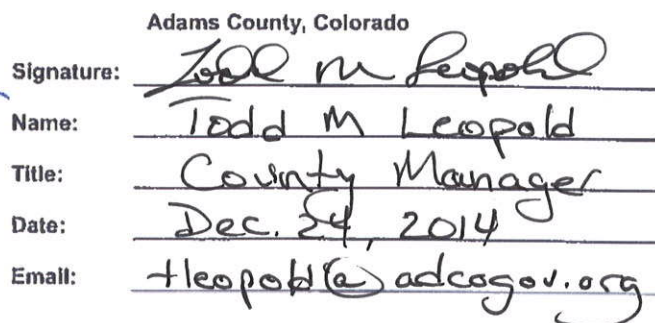 Adams County, Colorado
Signature: Todd M Leopold
Name: Todd M Leopold
Title: County Manager
Date: Dec. 24, 2014
Email: tleopold@adcogov.org